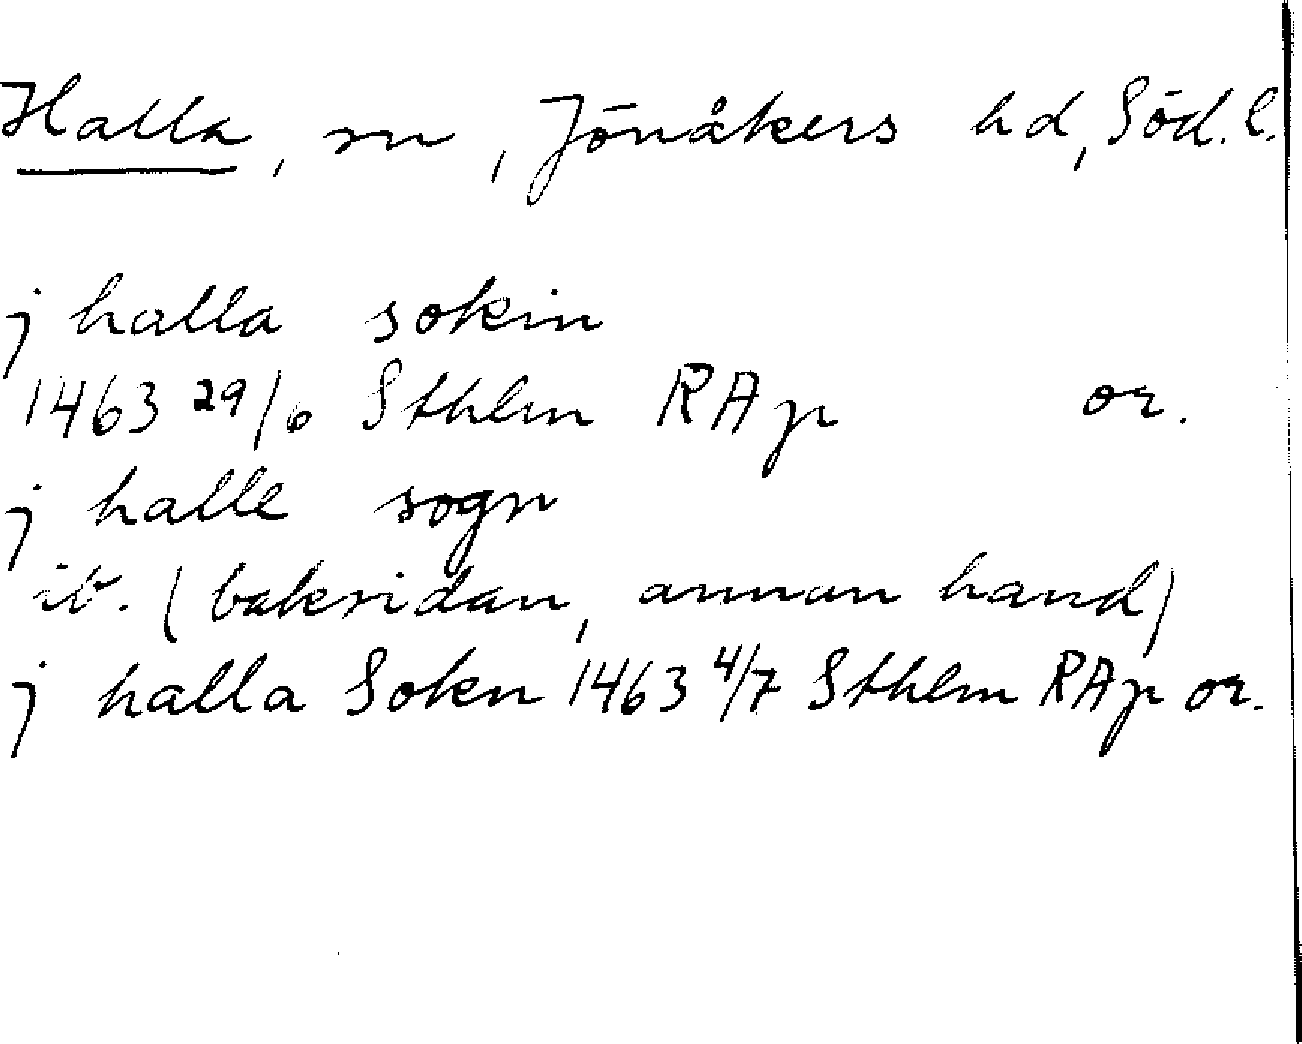 Halla, sn, Jönåkers hd, Söd. l.
j halla sokin
1463 29/6 Sthlm RAp or.
j halle sogn
ib. (baksidan, annan hand)
j halla Sokn 1463 4/7 Sthlm RAp or.